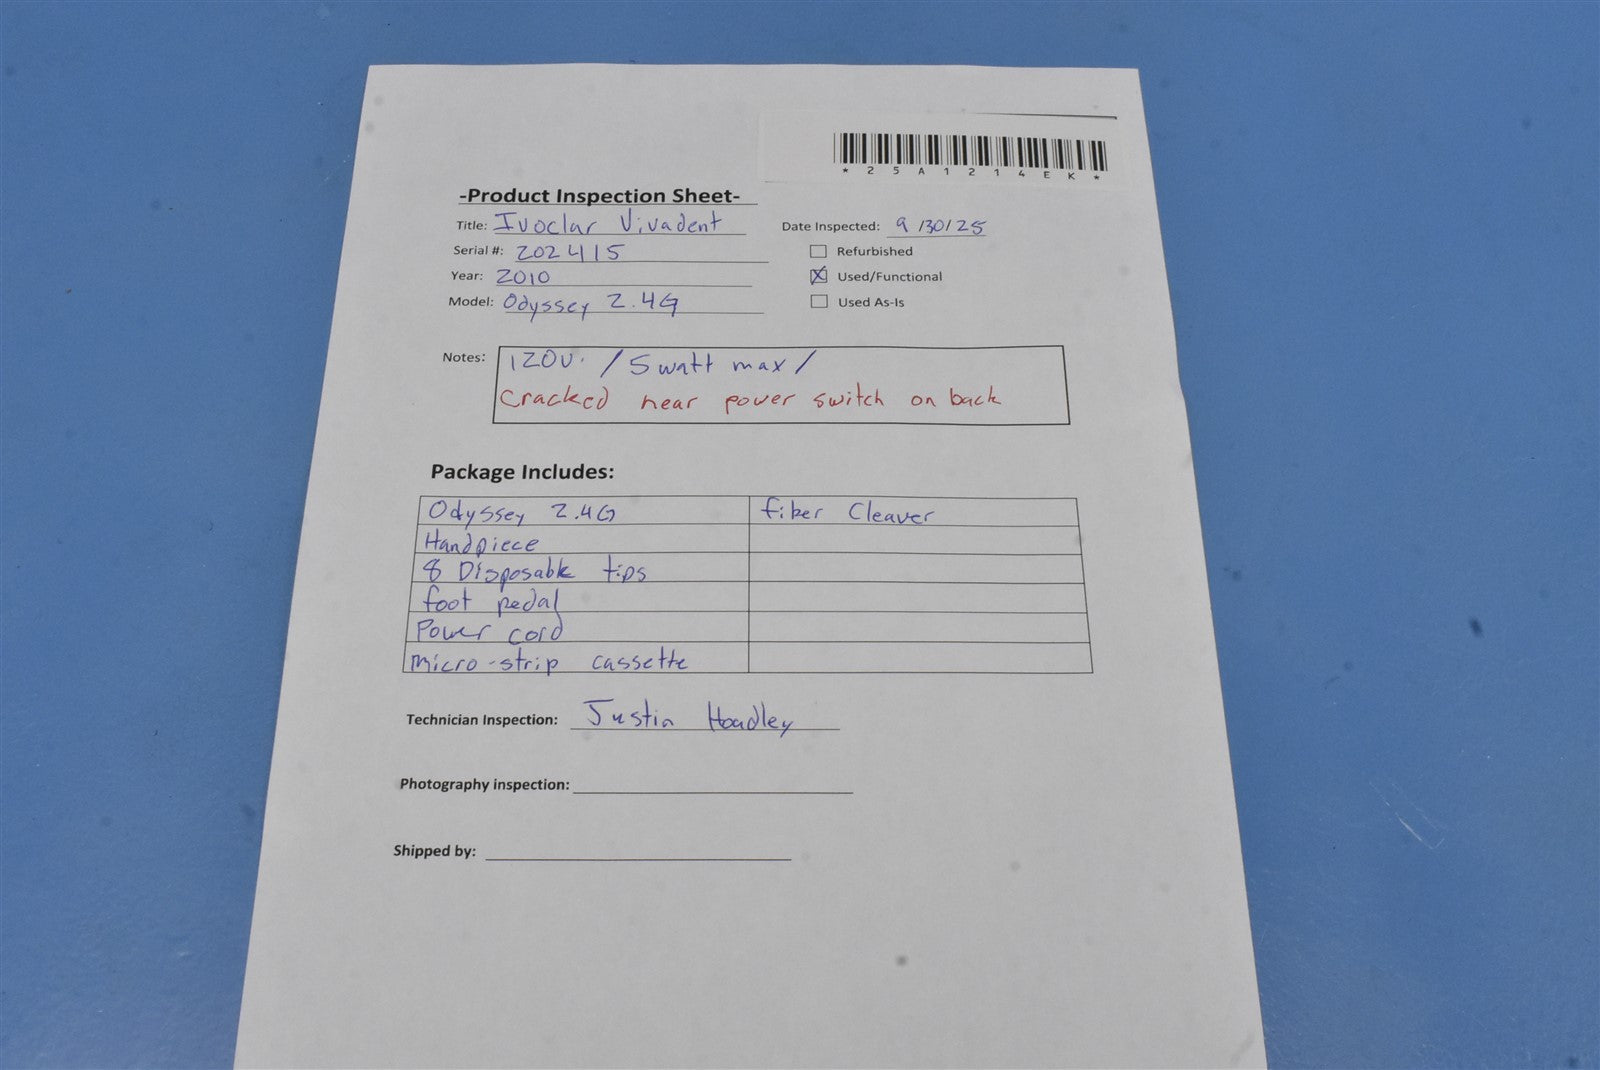 *25A1214EK*
-Product Inspection Sheet-
Title: Ivoclar Vivadent
Date Inspected: 9/30/25
Serial #: 202415
Refurbished
Year: 2010
Used/Functional
Model: Odyssey 2.4G
Used As-Is
Notes: 120V. / 5 watt max /
Cracked near power switch on back
Package Includes:
Odyssey 2.4G fiber Cleaver
Handpiece
8 Disposable tips
foot pedal
Power cord
micro-strip cassette
Technician Inspection: Justin Hoadley
Photography inspection:
Shipped by: